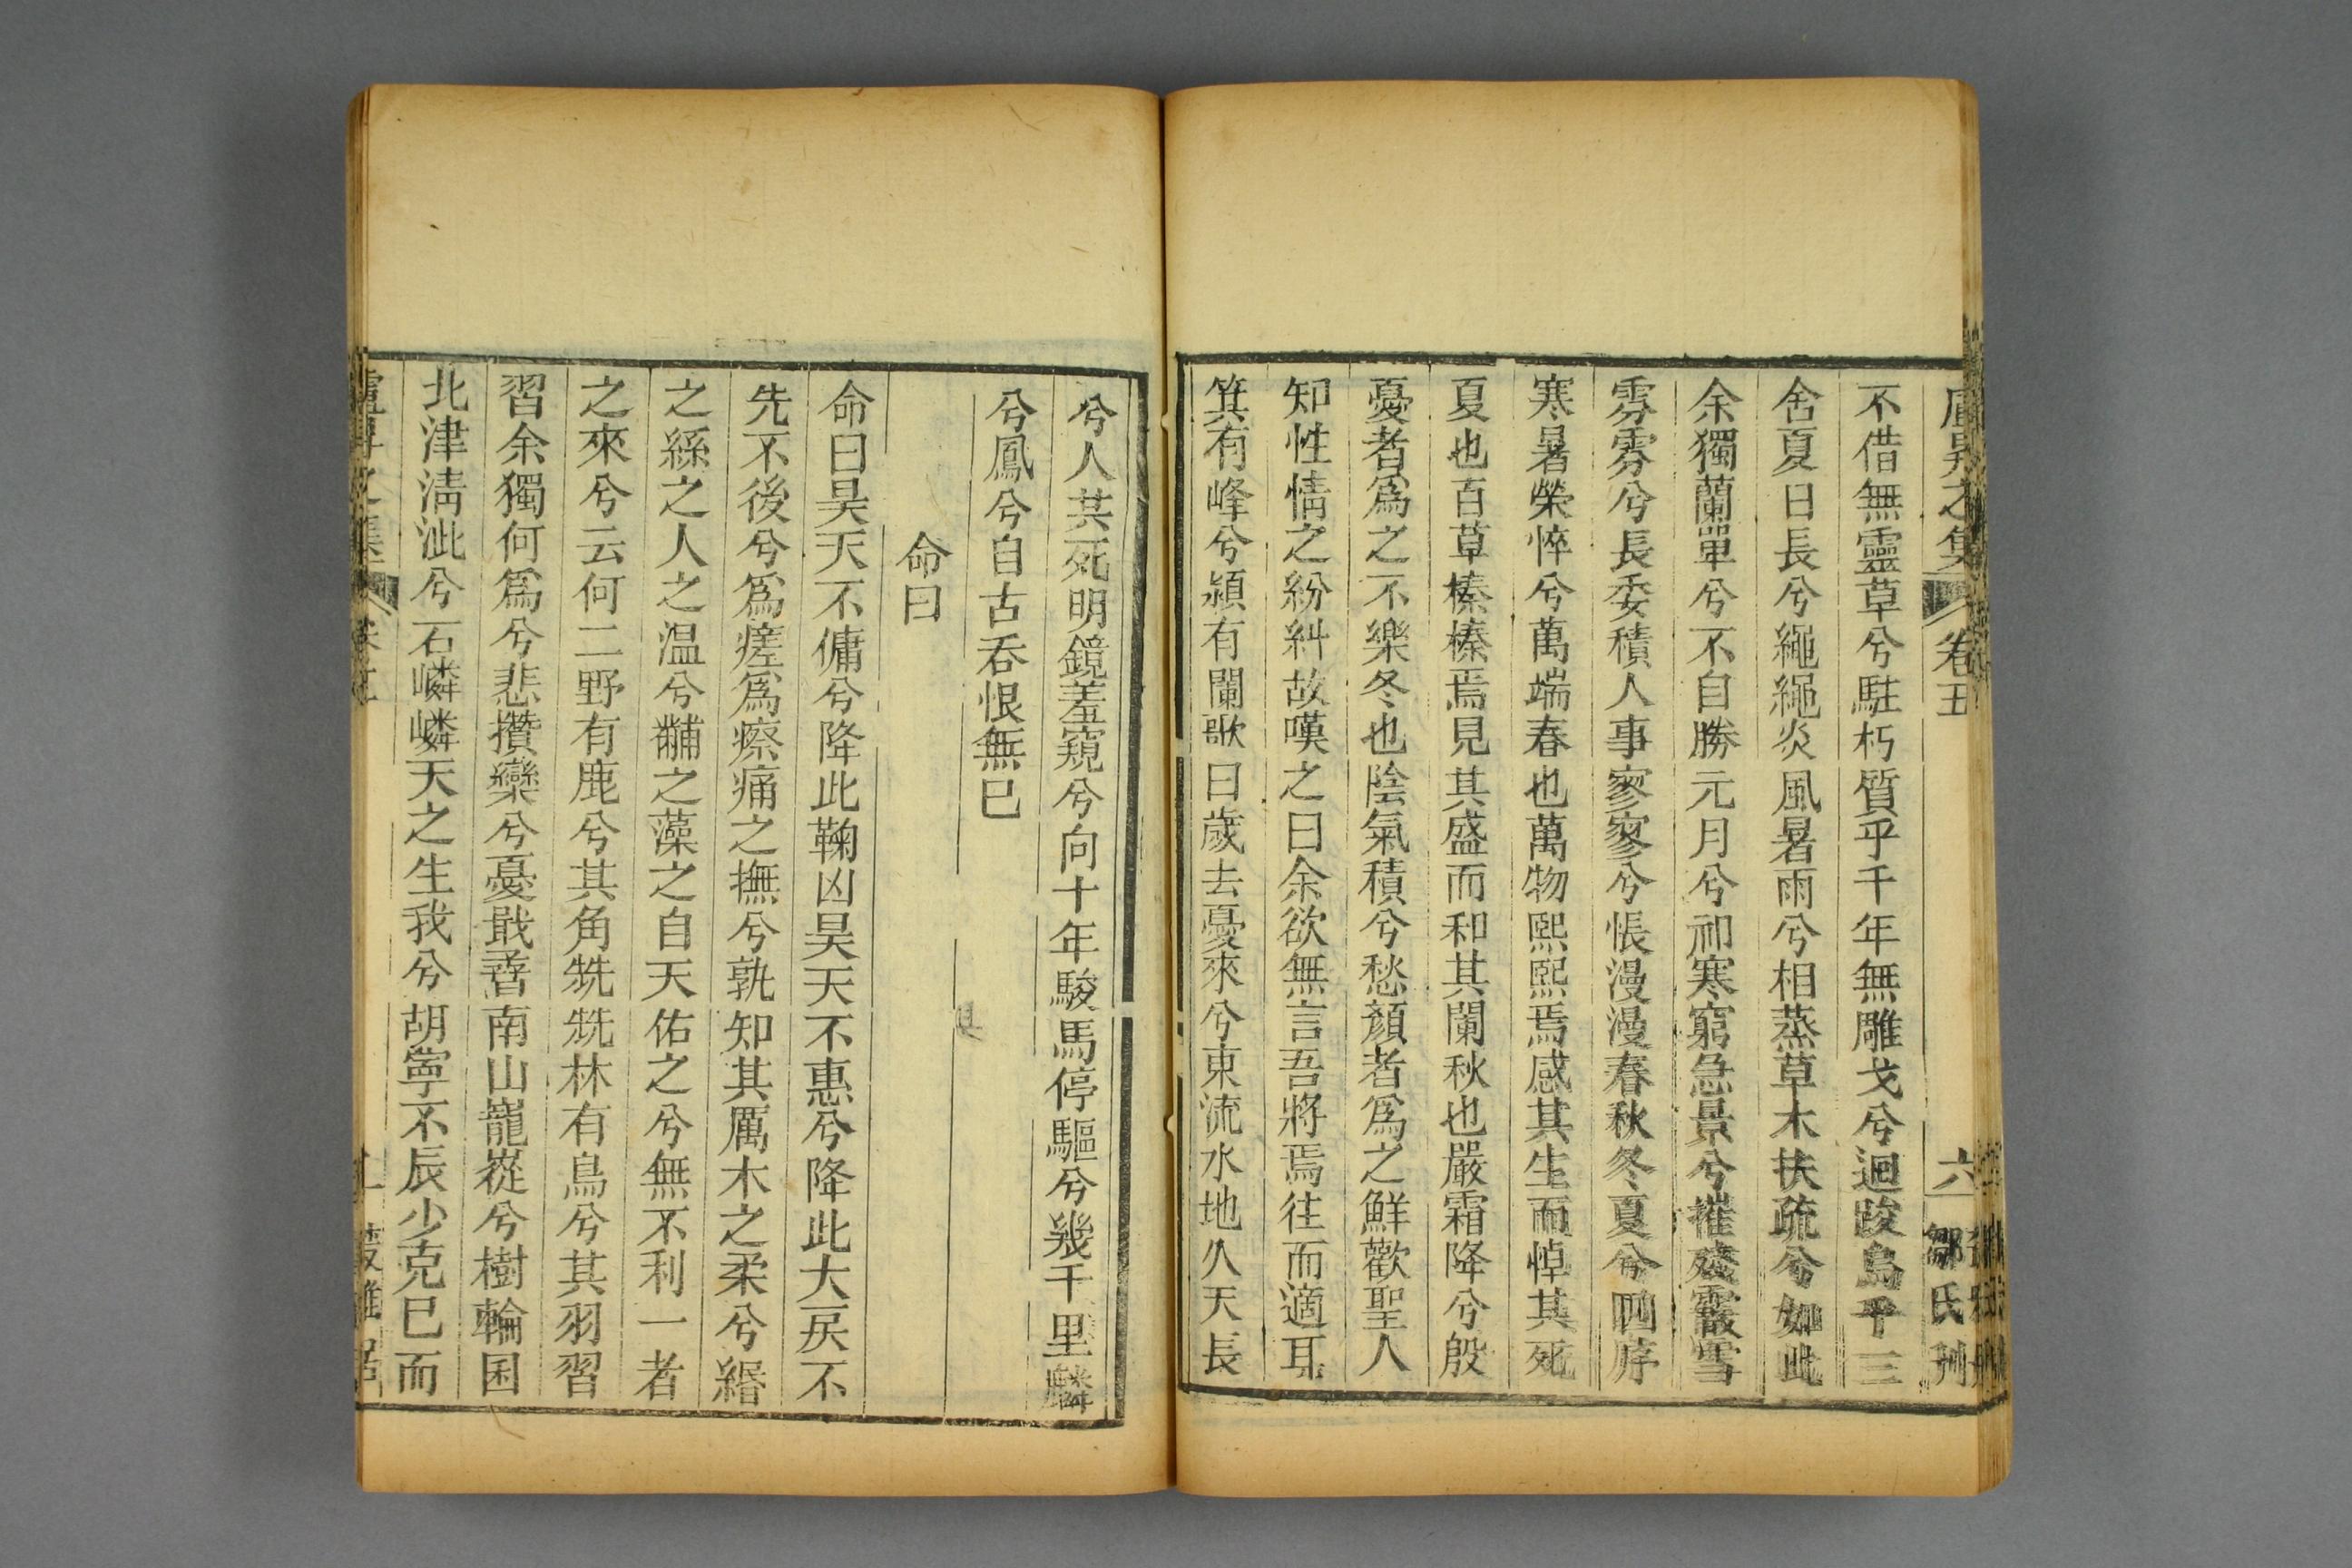 盧昇之集 卷五 六 鄒氏刋
不借無靈草兮駐朽質乎千年無雕戈兮迴踆烏乎三
舍夏日長兮繩繩炎風暑雨兮相蒸草木扶疏兮如此
余獨蘭單兮不自勝元月兮祁寒窮急景兮摧殘霰雪
雰雰兮長委積人事寥寥兮悵漫漫春秋冬夏兮四序
寒暑榮悴兮萬端春也萬物熙熙焉感其生而悼其死
夏也百草榛榛焉見其盛而和其闌秋也嚴霜降兮殷
憂者爲之不樂冬也陰氣積兮愁顏者爲之鮮歡聖人
知性情之紛糾故嘆之曰余欲無言吾將焉往而適耳
箕有峰兮潁有闌歌曰歲去憂來兮東流水地久天長
兮人共死明鏡羞窺兮向十年駿馬停驅兮幾千里麟
兮鳳兮自古吞恨無已
命曰
命曰昊天不傭兮降此鞠凶昊天不惠兮降此大戾不
先不後兮爲瘥爲瘵痛之撫兮孰知其厲木之柔兮緡
之絲之人之温兮黼之藻之自天佑之兮無不利一者
之來兮云何二野有鹿兮其角兟兟林有鳥兮其羽習
習余獨何爲兮悲攢欒兮憂戢孴南山巃嵷兮樹輪囷
北津淸泚兮石嶙嶙天之生我兮胡寧不辰少克已而